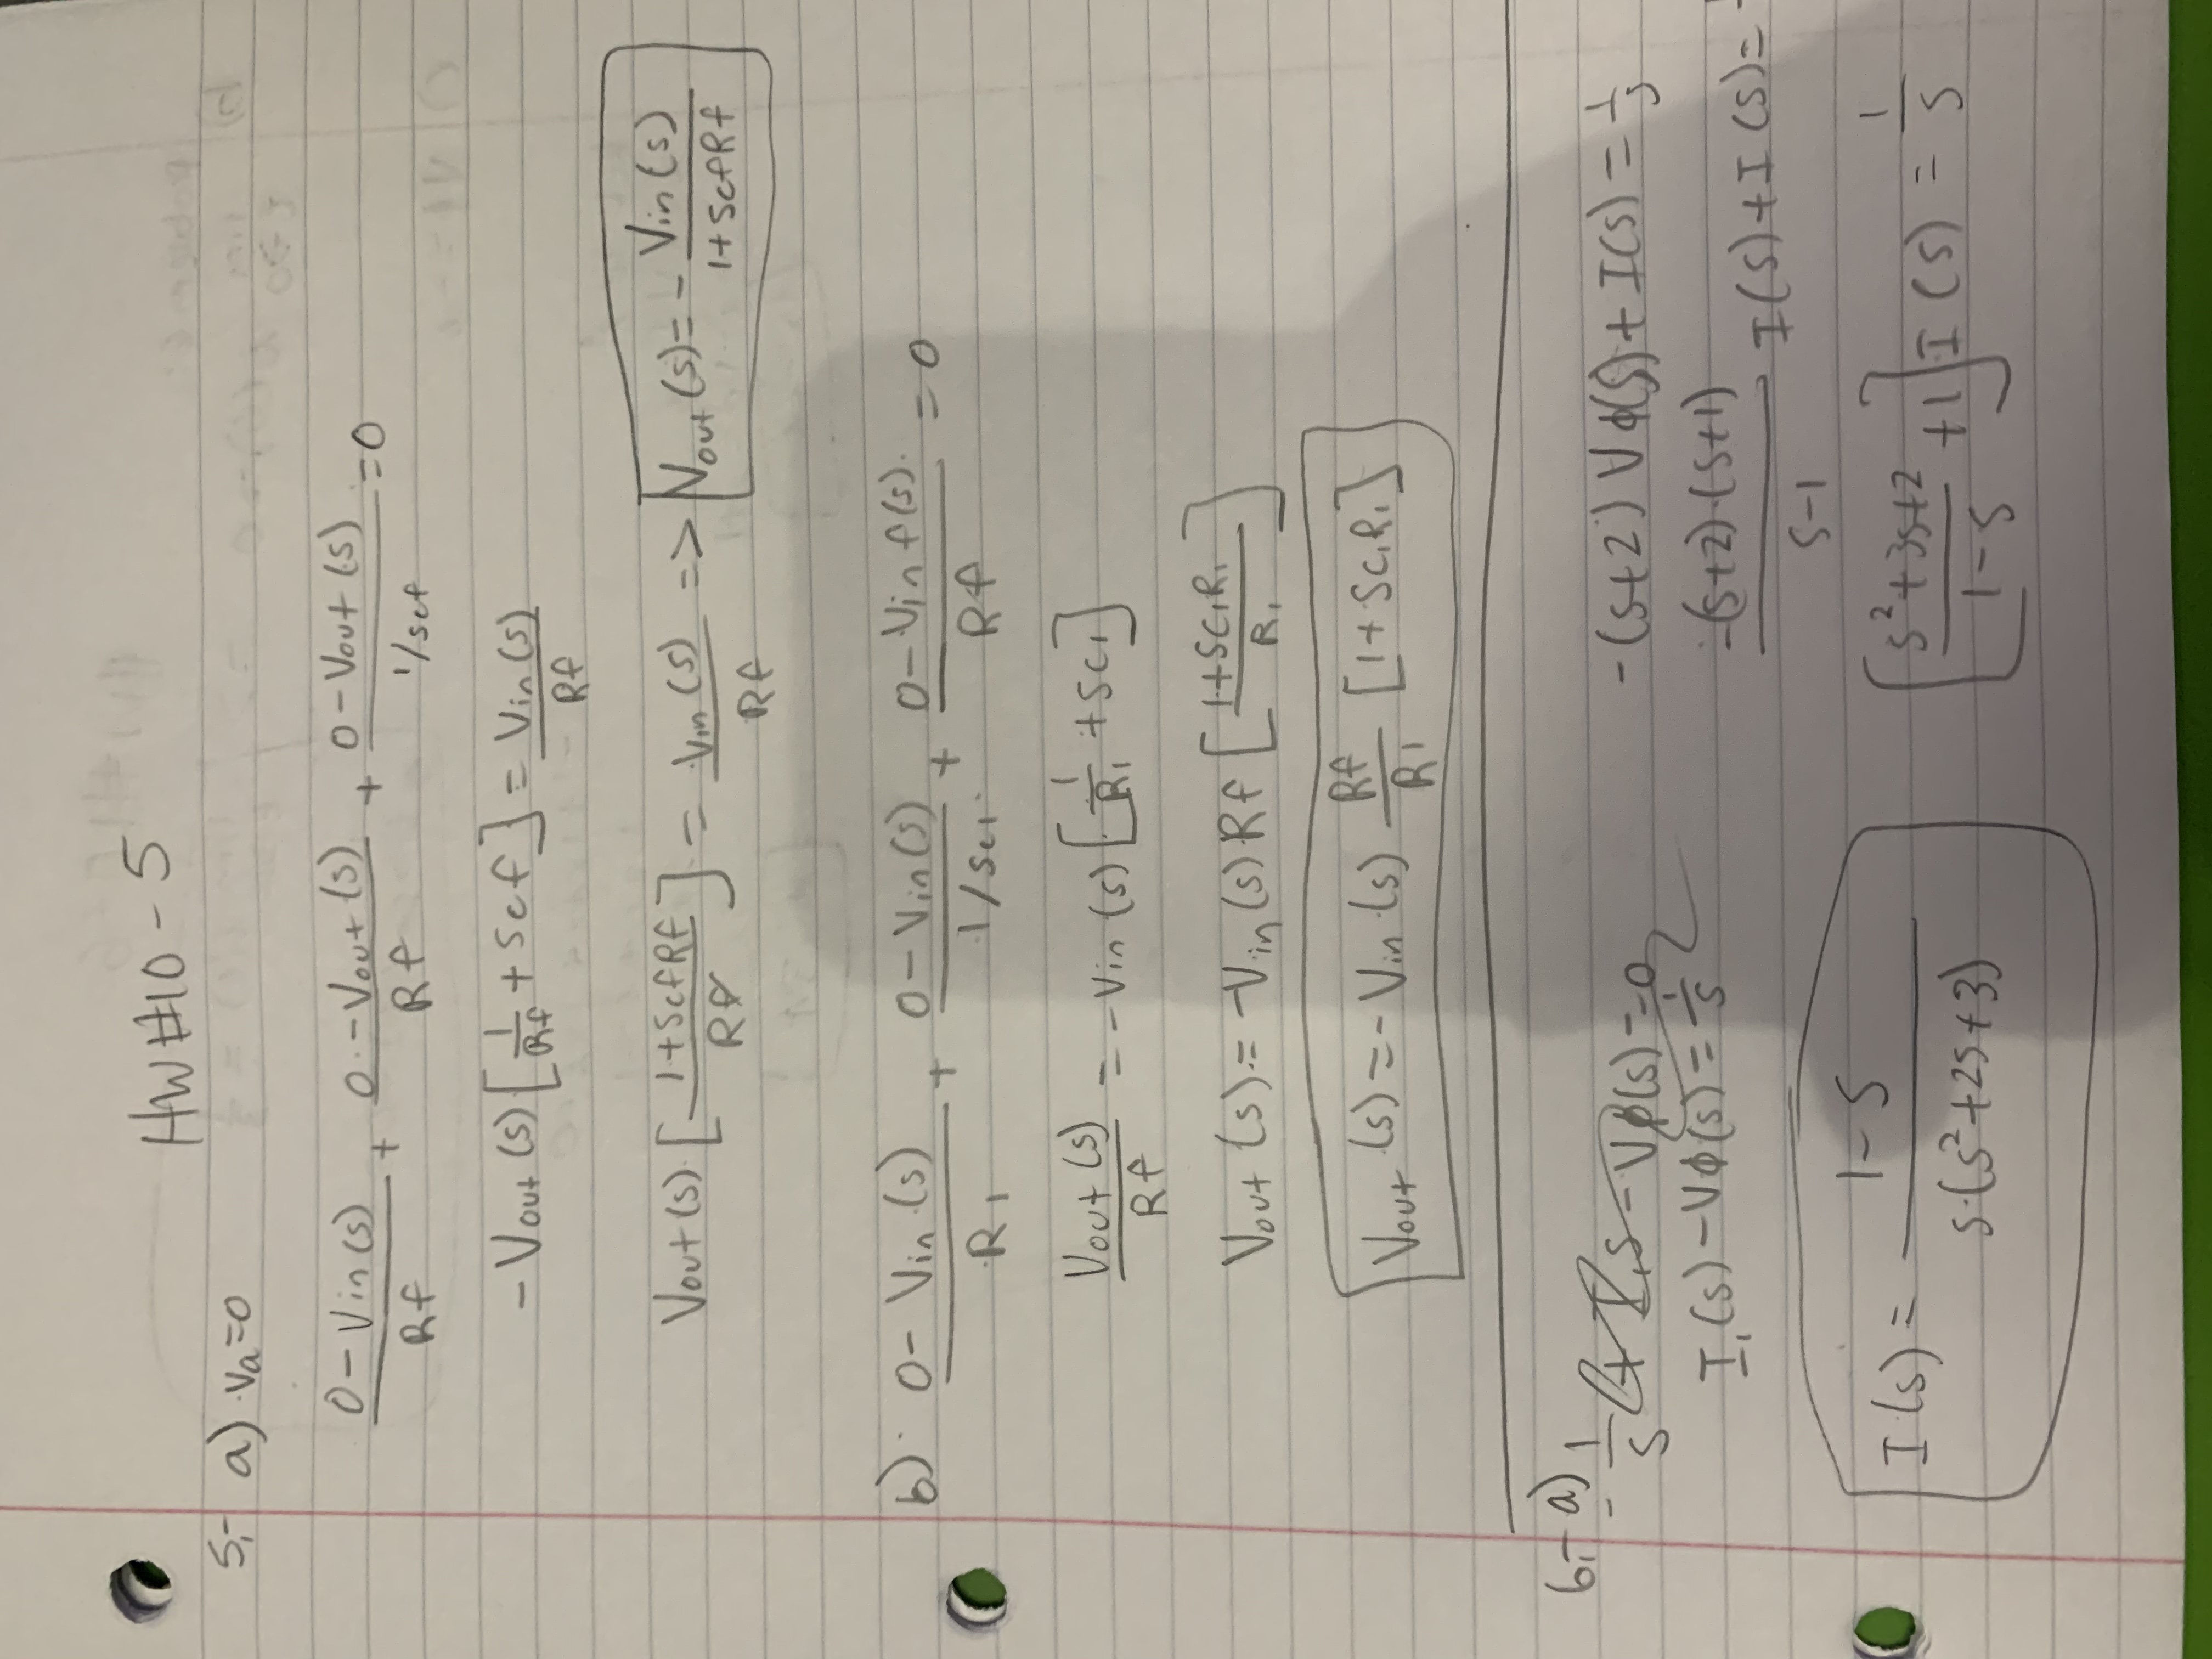 HW#10-5
5.- a) Va=0
(0-Vin(s))/Rf + (0-Vout(s))/Rf + (0-Vout(s))/(1/scf) =0
-Vout(s)[1/Rf + Scf] = Vin(s)/Rf
Vout(s)[(1+ScfRf)/Rf] = Vin(s)/Rf => Vout(s)= - Vin(s)/(1+ScfRf)
b) (0-Vin(s))/R1 + (0-Vin(s))/(1/Sc1) + (0-Vinf(s))/Rf = 0
Vout(s)/Rf = -Vin(s)[1/R1 + SC1]
Vout(s)= -Vin(s)Rf[(1+SC1R1)/R1]
Vout(s)= -Vin(s) Rf/R1 [1+SC1R1]
6.- a) - 1/s + I1s - Vφ(s)=0
I1(s)-Vφ(s)= 1/s
-(s+2)Vφ(s)+I(s)= 1/s
(-(s+2)·(s+1))/(s-1) I(s)+I(s)=
[(s²+3s+2)/(1-s) +1]I(s) = 1/s
I(s)= (1-s)/(s·(s²+2s+3))